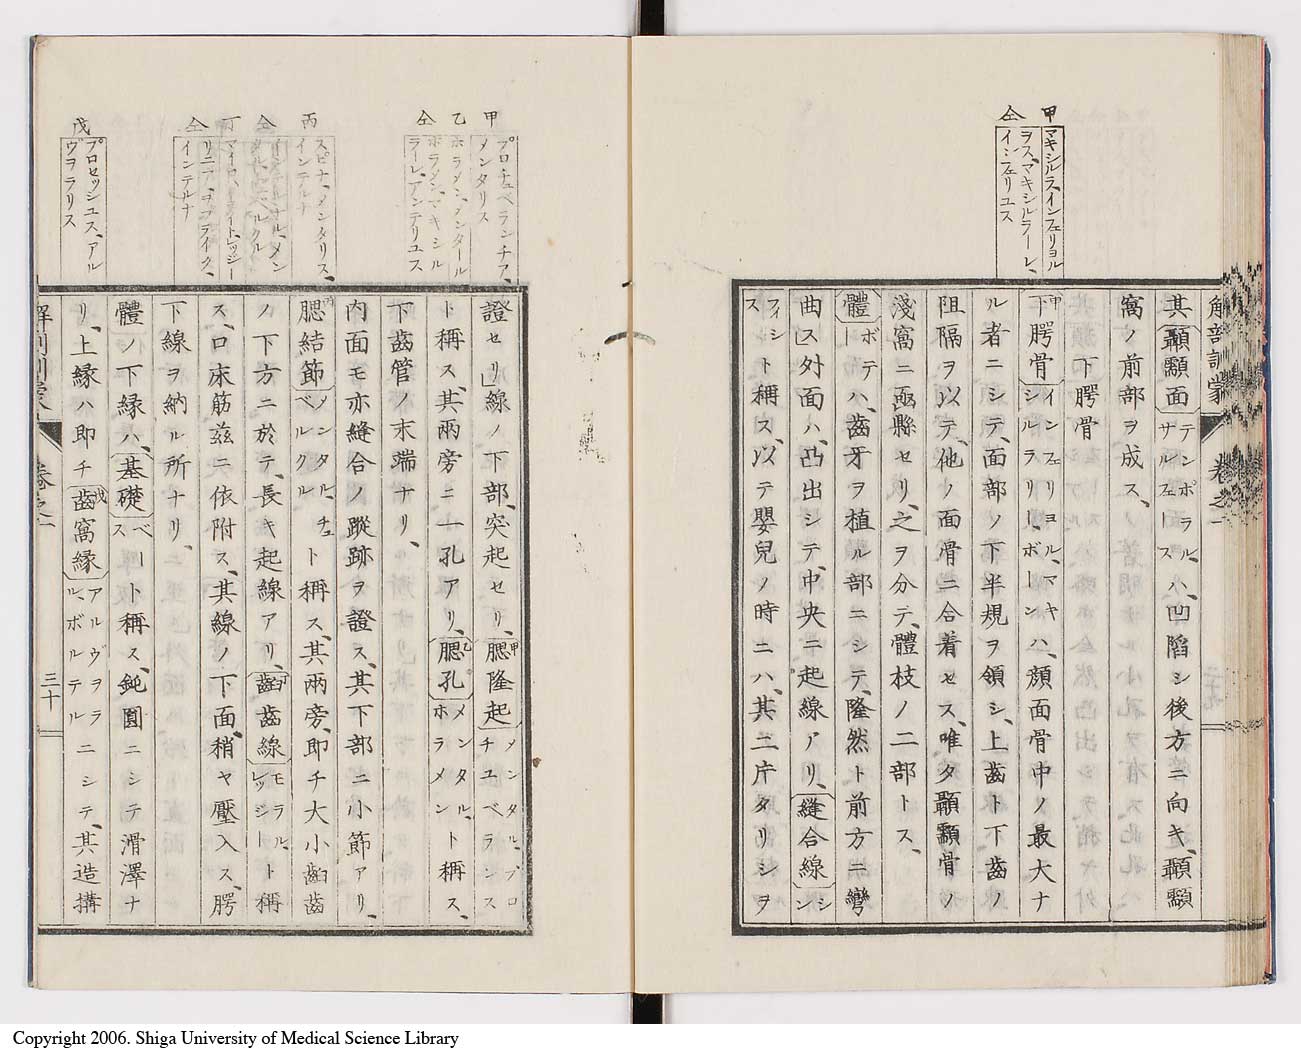 甲
仝
マキシルラ、インフェリヨル
ヲス、マキシルラーレ、
イミフェリユス
解剖訓蒙
卷之一
其顳顬面テンポラル、ハ、凹陷シ後方ニ向キ、顳顬
ザルフェース
窩ノ前部ヲ成ス、
下腭骨
甲
下腭骨インフェリヨル、マキハ、顔面骨中ノ最大ナ
シルラリ、ボーン
ル者ニシテ、面部ノ下半規ヲ領シ、上齒ト下齒ノ
阻隔ヲ以テ、他ノ面骨ニ合着セス、唯タ顳顬骨ノ
淺窩ニ亟縣セリ、之ヲ分テ、體枝ノ二部トス、
體ボデハ、齒牙ヲ植ル部ニシテ、隆然ト前方ニ彎
曲ス」外面ハ、凸出シテ、中央ニ起線アリ、縫合線シン
フィシト稱ス、以テ嬰兒ノ時ニハ、其二片タリシヲ
ス
甲
乙
仝
丙
仝
丁
仝
戊
プロチュベランチア、
メンタリス
ホラメン、メンタール
ホラメン、マキシル
ラーレ、アンテリユス
スピナ、メンタリス、
インテルナ
インテルナル、メン
タル、ベルクル
リニア、ヲブライク、
インテルナ
プロセッシユス、アル
ヴヲラリス
證セリ」線ノ下部、突起セリ、頤隆起メンタル、プロ
チユベランス
ト稱ス、其兩旁ニ一孔アリ、頤孔メンタル、ト稱ス、
ホラメン
下齒管ノ末端ナリ、
内面モ亦縫合ノ蹤跡ヲ證ス、其下部ニ小節アリ、
頤結節メンタル、チュト稱ス、其兩旁、即チ大小齒
ベルクル
ノ下方ニ於テ、長キ起線アリ、齒線モラル、ト稱
レッジ
ス、口床筋茲ニ依附ス、其線ノ下面、稍ヤ壓入ス、腭
下線ヲ納ル所ナリ、
體ノ下縁ハ、基礎ベート稱ス、鈍圓ニシテ滑澤ナ
ス
リ、上縁ハ即チ齒窩縁アルヴヲラニシテ、其造搆
ル、ボルテル
解剖訓蒙
卷之一
三十
Copyright 2006. Shiga University of Medical Science Library